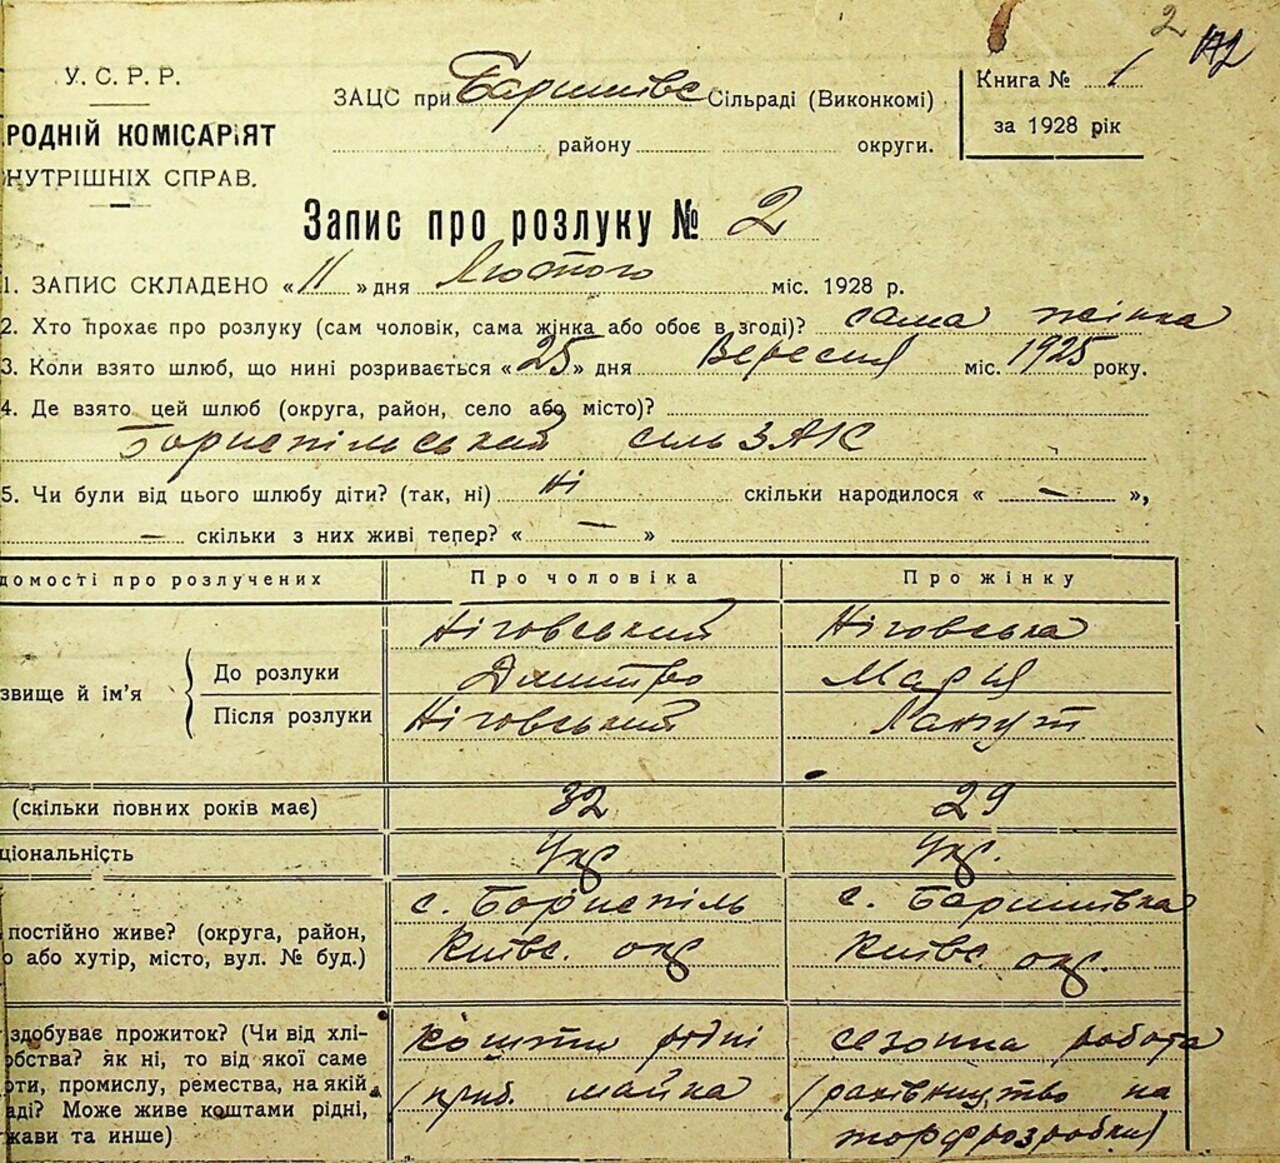 2 172
У. С. Р. Р.
РОДНІЙ КОМІСАРІЯТ
НУТРІШНІХ СПРАВ.
ЗАЦС при Баришівс Сільраді (Виконкомі)
району округи.
Книга № 1
за 1928 рік
Запис про розлуку № 2
1. ЗАПИС СКЛАДЕНО « 11 » дня Лютого міс. 1928 р.
2. Хто прохає про розлуку (сам чоловік, сама жінка або обоє в згоді)? сама жінка
3. Коли взято шлюб, що нині розривається « 25 » дня Вересня міс. 1925 року.
4. Де взято цей шлюб (округа, район, село або місто)?
Бориспільський сельЗАКС
5. Чи були від цього шлюбу діти? (так, ні) ні скільки народилося « — »,
— скільки з них живі тепер? « — »
домості про розлучених Про чоловіка Про жінку
Ніговський Ніговська
звище й ім'я До розлуки Дмитро Марія
Після розлуки Ніговський
(скільки повних років має) 32 29
ціональність Укр Укр.
с. Бориспіль с. Баришівка
постійно живе? (округа, район,
о або хутір, місто, вул. № буд.) Київс. окр Київс. окр.
здобуває прожиток? (Чи від хлі- кошти рідні сезонна робота
бства? як ні, то від якої саме
оти, промислу, ремества, на якій (приб. майка (рахівництво на
аді? Може живе коштами рідні,
жави та инше) торфрозробках)